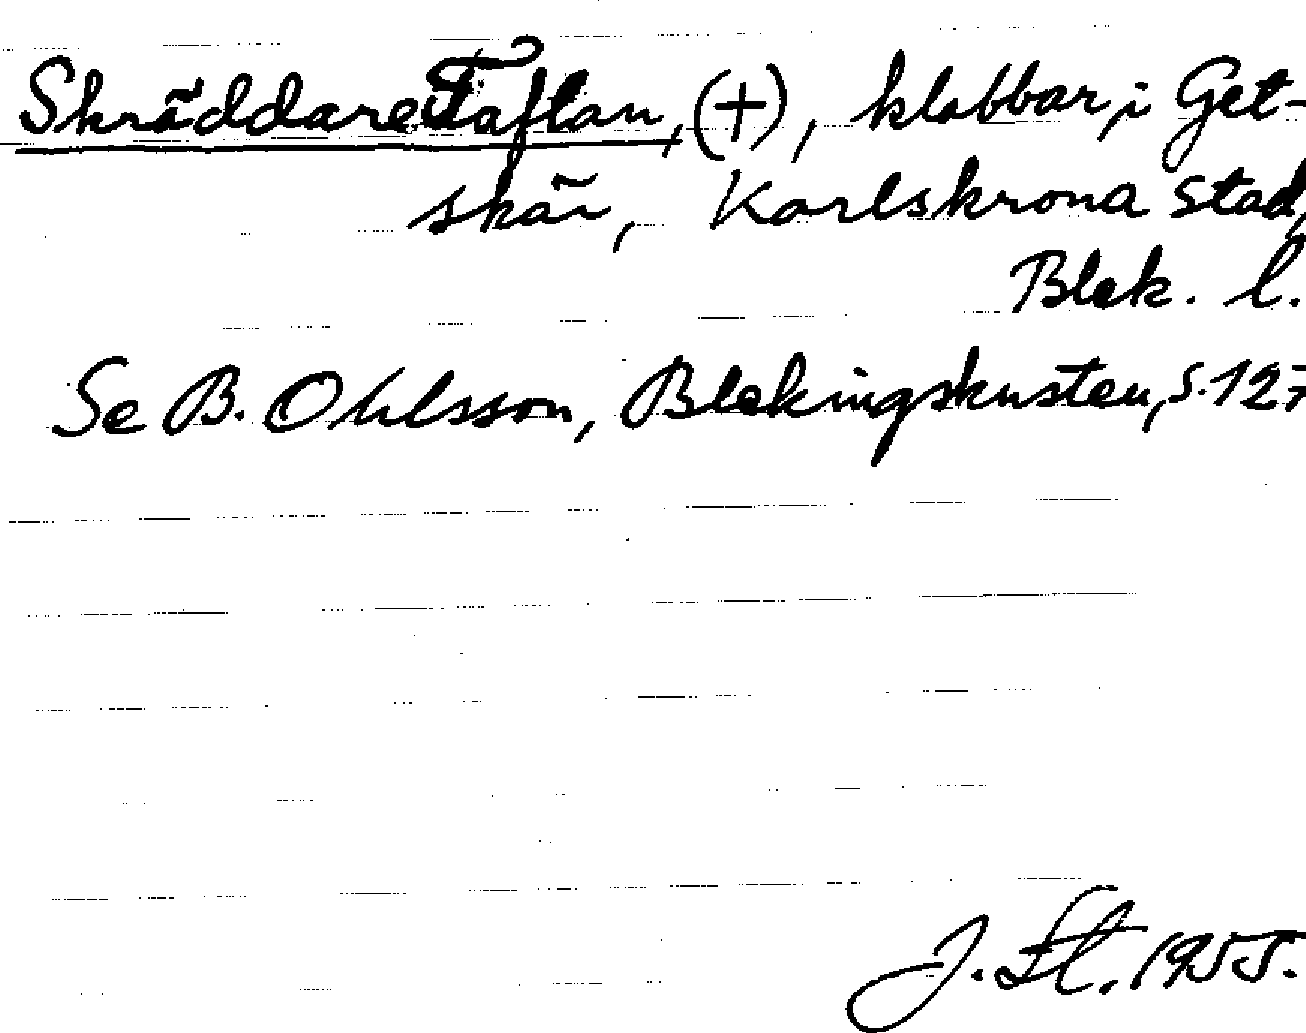 Skräddare Taflan, (+), klabbar, i Get-
skär, Karlskrona stad,
Blek. l.
Se B. Ohlsson, Blekingskusten, s. 127
J. St. 1955.